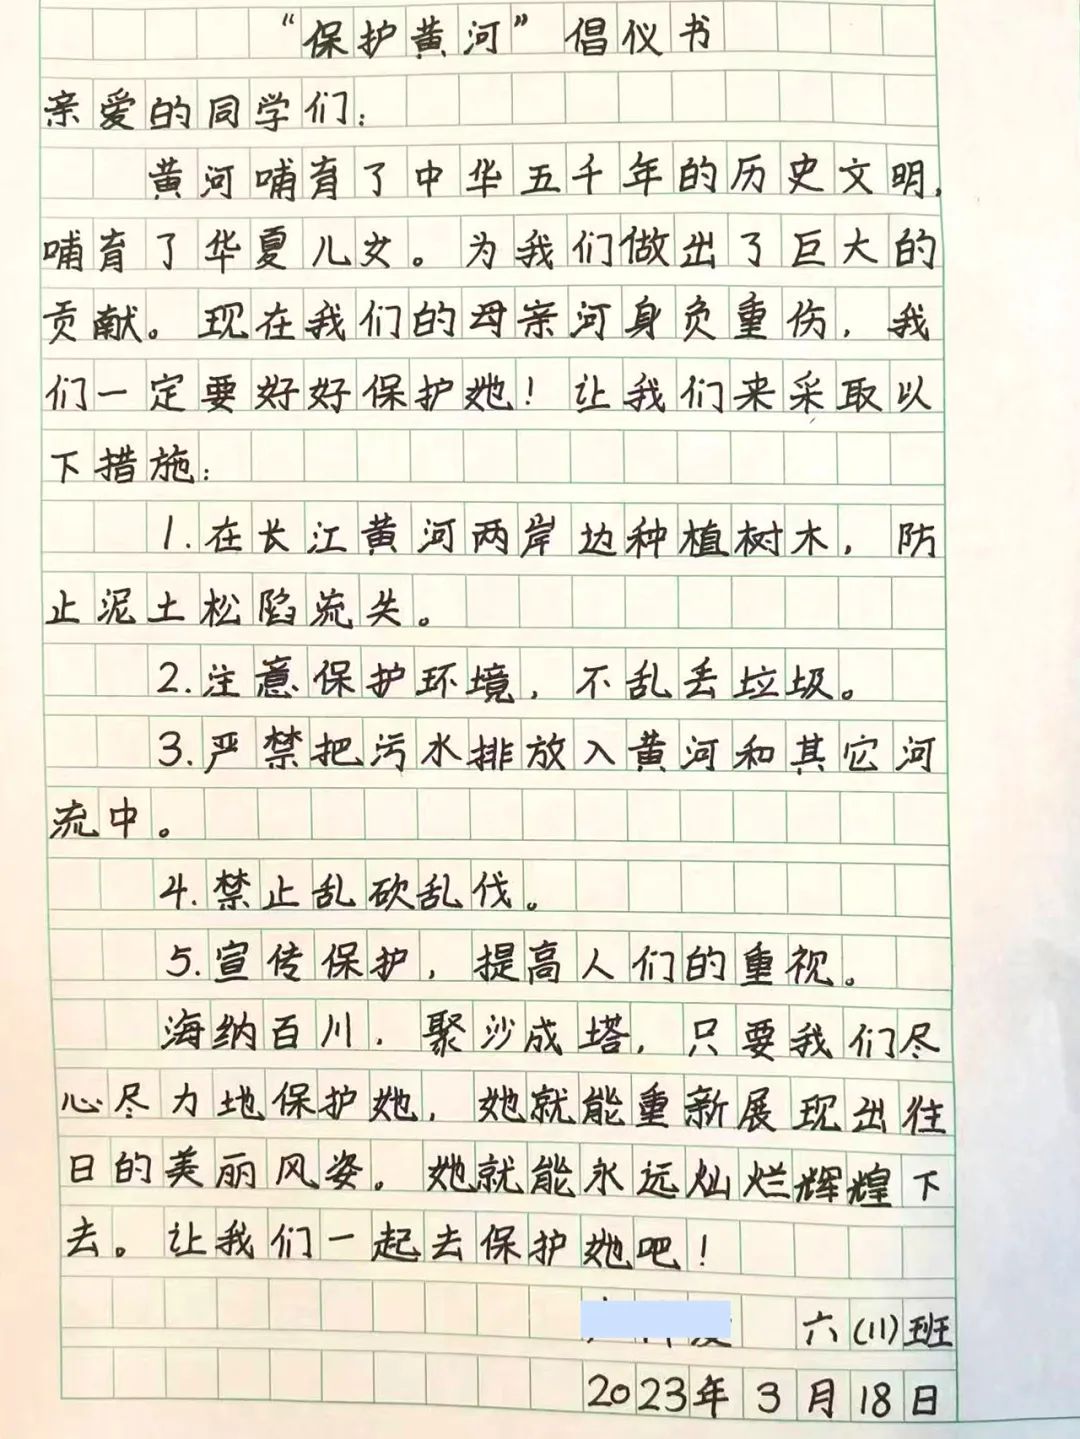 “保护黄河”倡仪书
亲爱的同学们：
黄河哺育了中华五千年的历史文明，
哺育了华夏儿女。为我们做出了巨大的
贡献。现在我们的母亲河身负重伤，我
们一定要好好保护她！让我们来采取以
下措施：
1.在长江黄河两岸边种植树木，防
止泥土松陷流失。
2.注意保护环境，不乱丢垃圾。
3.严禁把污水排放入黄河和其它河
流中。
4.禁止乱砍乱伐。
5.宣传保护，提高人们的重视。
海纳百川．聚沙成塔，只要我们尽
心尽力地保护她，她就能重新展现出往
日的美丽风姿。她就能永远灿烂辉煌下
去。让我们一起去保护她吧！
六(11)班
2023年3月18日